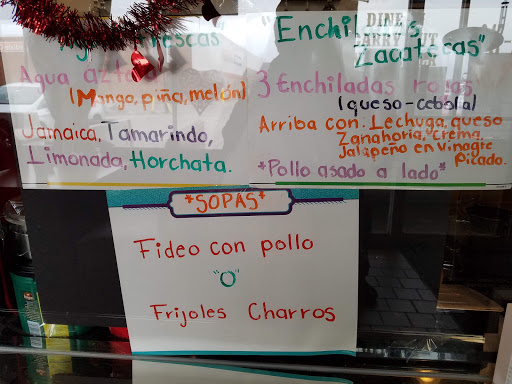 Frescas
Agua azteca
(Mango, piña, melón)
Jamaica, Tamarindo,
Limonada, Horchata.
"Enchiladas
Zacatecas"
3 Enchiladas rojas
(queso-cebolla)
Arriba con: Lechuga, queso
Zanahoria, crema
Jalapeño en vinagre
Picado.
*Pollo asado a lado*
DINE
CARRY OUT
*SOPAS*
Fideo con pollo
"O"
Frijoles Charros